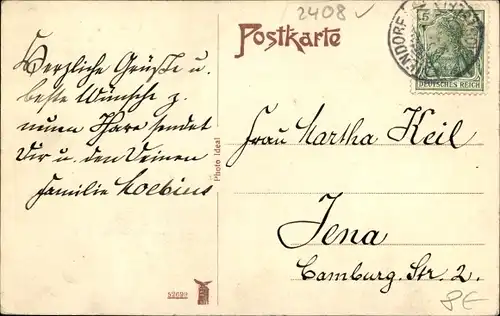 2408
Postkarte
5
DEUTSCHES REICH
Herzliche Grüße u.
beste Wünsche z.
neuen Jhare sendet
Dir u. den Deinen
Familie Moebius
Photo Ideal
Frau Martha Keil
Jena
Camburg. Str. 2.
52699